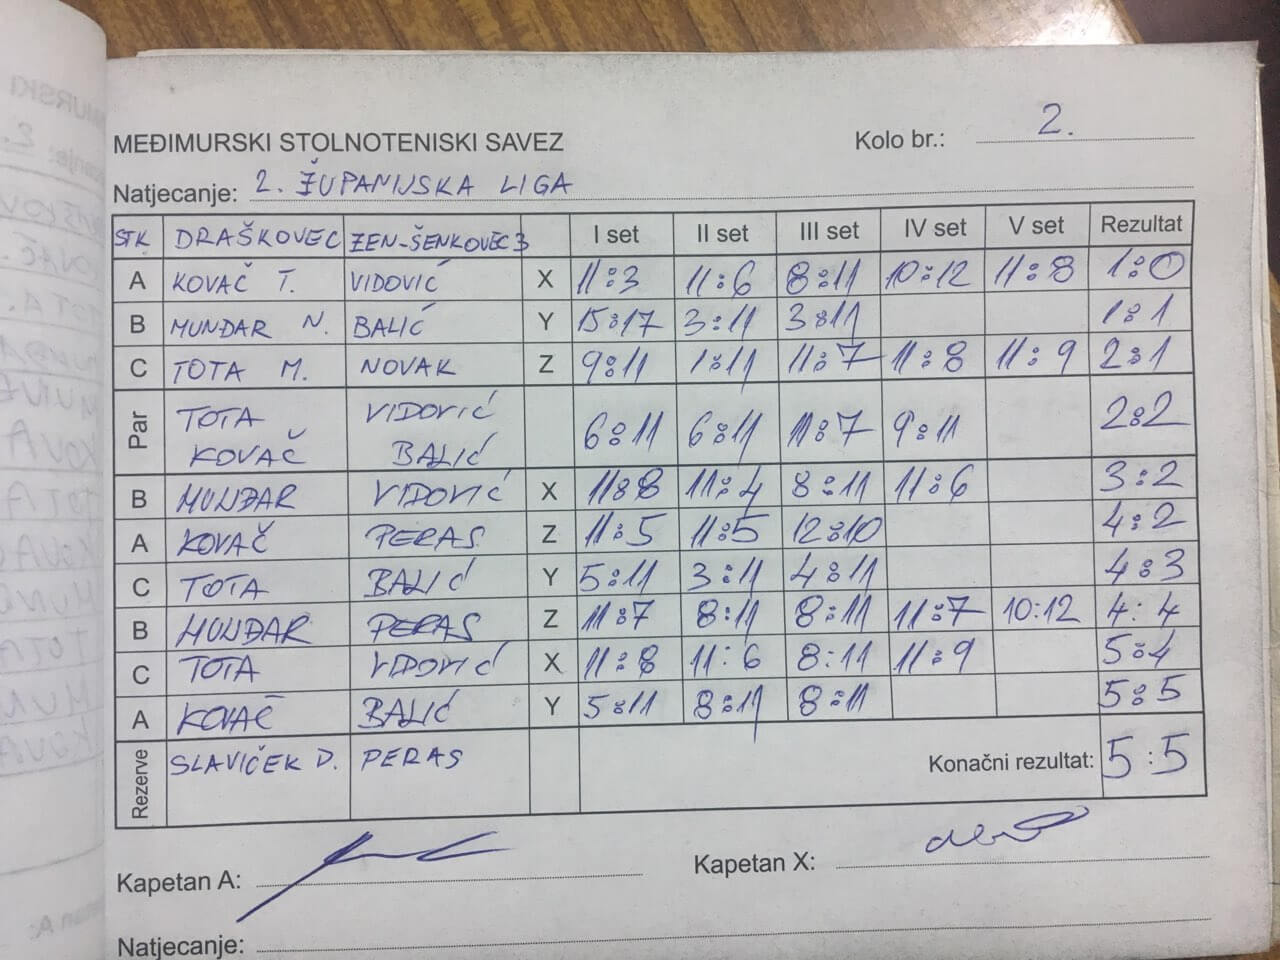 MEĐIMURSKI STOLNOTENISKI SAVEZ
Kolo br.: 2.
Natjecanje: 2. ŽUPANIJSKA LIGA
STK DRAŠKOVEC ZEN-ŠENKOVEC 3 I set II set III set IV set V set Rezultat
A KOVAČ T. VIDOVIĆ X 11:3 11:6 8:11 10:12 11:8 1:0
B MUNĐAR N. BALIĆ Y 15:17 3:11 3:11 1:1
C TOTA M. NOVAK Z 9:11 1:11 11:7 11:8 11:9 2:1
Par TOTA KOVAČ VIDOVIĆ BALIĆ 6:11 6:11 11:7 9:11 2:2
B MUNĐAR VIDOVIĆ X 11:8 11:4 8:11 11:6 3:2
A KOVAČ PERAS Z 11:5 11:5 12:10 4:2
C TOTA BALIĆ Y 5:11 3:11 4:11 4:3
B MUNĐAR PERAS Z 11:7 8:11 8:11 11:7 10:12 4:4
C TOTA VIDOVIĆ X 11:8 11:6 8:11 11:9 5:4
A KOVAČ BALIĆ Y 5:11 8:11 8:11 5:5
Rezerve SLAVIČEK D. PERAS Konačni rezultat: 5:5
Kapetan A: Kapetan X:
Natjecanje: